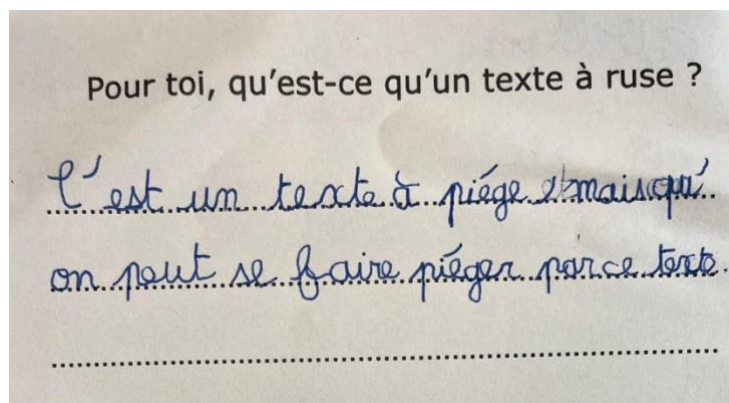 Pour toi, qu'est-ce qu'un texte à ruse ?
C'est un texte à piége mais qu'
on peut se faire piéger par ce texte.